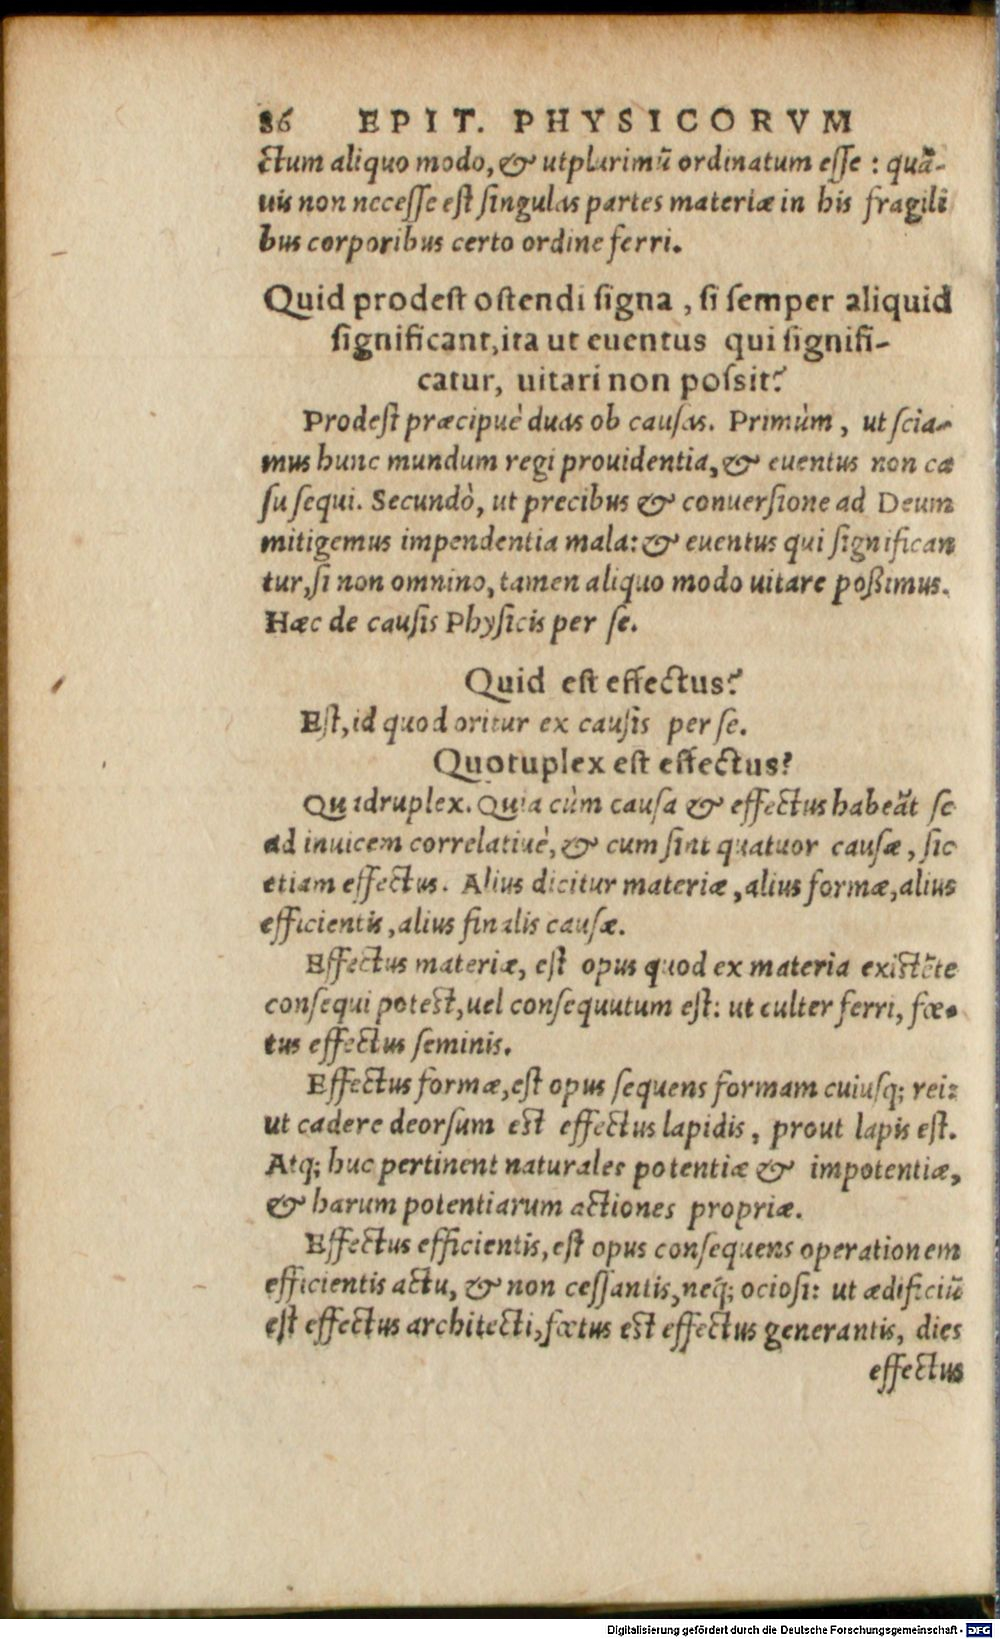 86 EPIT. PHYSICORVM
ctum aliquo modo, & utplurimũ ordinatum esse : quã-
uis non necesse est singulas partes materiæ in his fragili
bus corporibus certo ordine ferri.
Quid prodest ostendi signa , si semper aliquid
significant, ita ut euentus qui signifi-
catur, uitari non possit?
Prodest præcipuè duas ob causas. Primùm , ut scia-
mus hunc mundum regi prouidentia, & euentus non ca
su sequi. Secundò, ut precibus & conuersione ad Deum
mitigemus impendentia mala: & euentus qui significan
tur, si non omnino, tamen aliquo modo uitare poßimus.
Hæc de causis Physicis per se.
Quid est effectus?
Est, id quod oritur ex causis per se.
Quotuplex est effectus?
Quadruplex. Quia cùm causa & effectus habeãt se
ad inuicem correlatiuè, & cum sint quatuor causæ , sic
etiam effectus. Alius dicitur materiæ , alius formæ, alius
efficientis , alius finalis causæ.
Effectus materiæ, est opus quod ex materia existẽte
consequi potest, uel consequutum est: ut culter ferri, fœ-
tus effectus seminis.
Effectus formæ, est opus sequens formam cuiusq; rei:
ut cadere deorsum est effectus lapidis , prout lapis est.
Atq; huc pertinent naturales potentiæ & impotentiæ,
& harum potentiarum actiones propriæ.
Effectus efficientis, est opus consequens operationem
efficientis actu, & non cessantis, neq́; ociosi: ut ædificiũ
est effectus architecti, fœtus est effectus generantis, dies
effectus
Digitalisierung gefördert durch die Deutsche Forschungsgemeinschaft - DFG